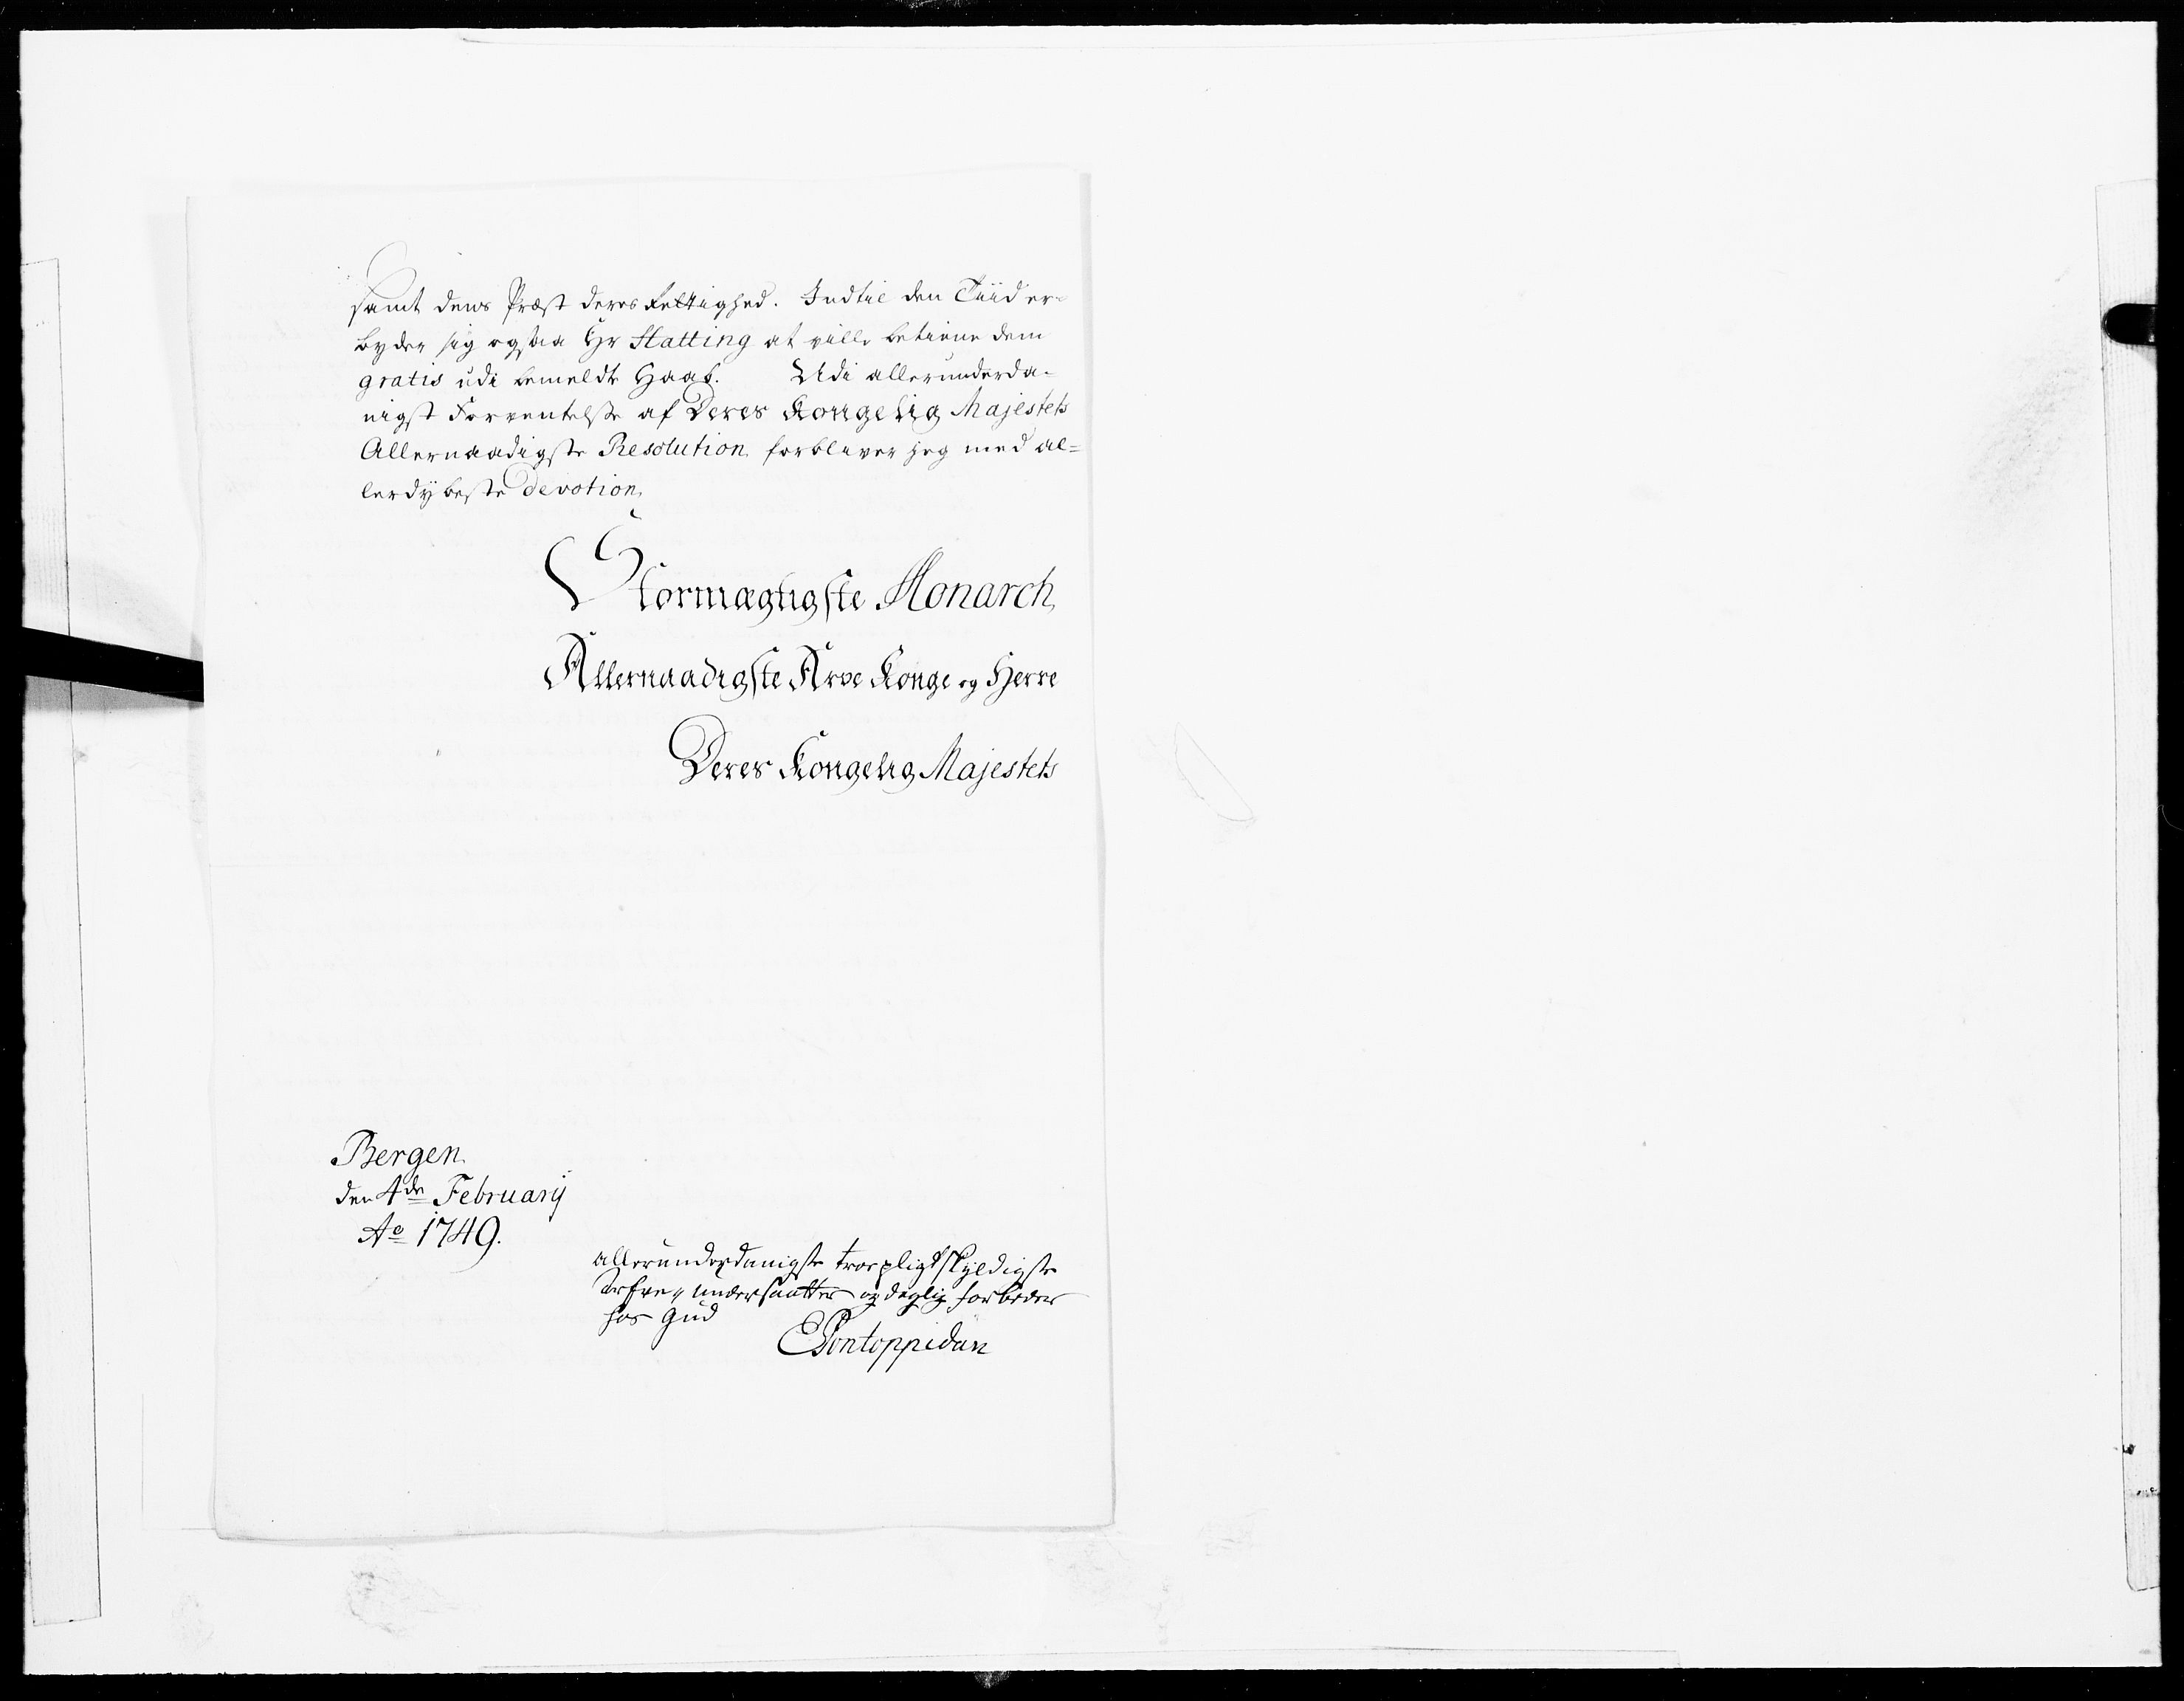 samt dens Præst deres Rettighed. Indtil den Tiid er-
byder sig ogsaa Hr Statting at ville betiene dem
gratis udi bemeldte Haab. Udi allerunderda-
nigst Forventelse af Deres Kongelig Majestets
Allernaadigste Resolution forbliver jeg med al=
lerdybeste devotion,
Stormægtigste Monarch,
Allernaadigste Arve Konge og Herre
Deres Kongelig Majestets
Bergen.
den 4de Februarij
Ao 1749.
allerunderdanigste troepligtskyldigste
undersaatter og daglig forbeder
hos Gud
EPontoppidan